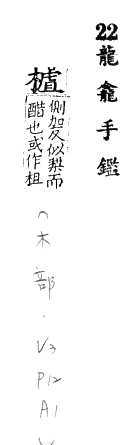 22龍龕手鑑
樝
側加反似梨而
醋也或作柤
(木部.V2 P12 A1)